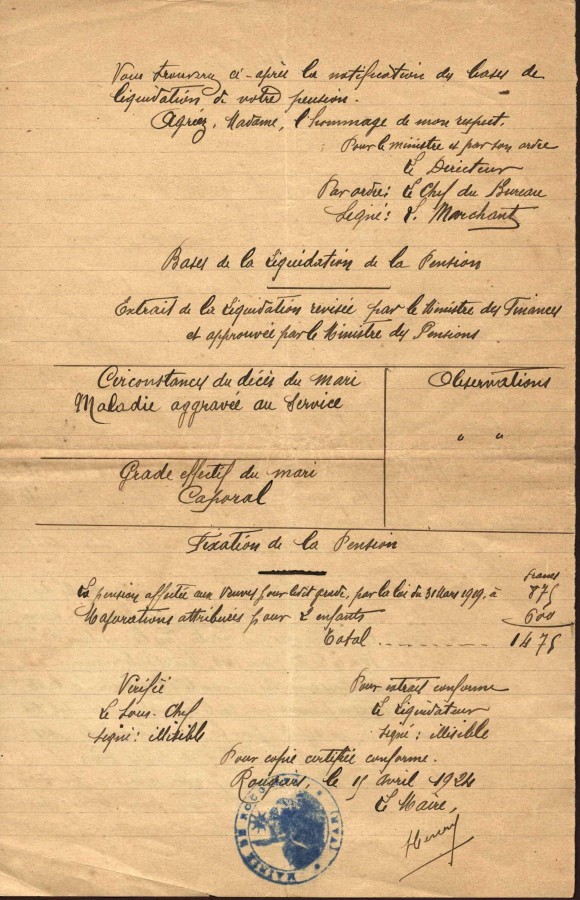 Vous trouverez ci-après la notification des bases de
liquidation de votre pension.
Agréez, Madame, l'hommage de mon respect.
Pour le ministre et par son ordre
Le Directeur
Par ordre: Le Chef du Bureau
Signé: S. Marchant
Bases de la Liquidation de la Pension
Extrait de la Liquidation revisée par le Ministre des Finances
et approuvée par le Ministre des Pensions
Circonstances du décès du mari
Maladie aggravée au Service
Observations
" "
Grade effectif du mari
Caporal
Fixation de la Pension
Francs
La pension affectée aux Veuves pour ledit grade, par la loi du 31 Mars 1919, à 875
Majorations attribuées pour 2 enfants 600
Total 1475
Vérifié
Le Sous-Chef
Signé: illisible
Pour extrait conforme
Le Liquidateur
Signé: illisible
Pour copie certifiée conforme.
le 15 Avril 1924
Le Maire,
MAIRIE DE (VAR)